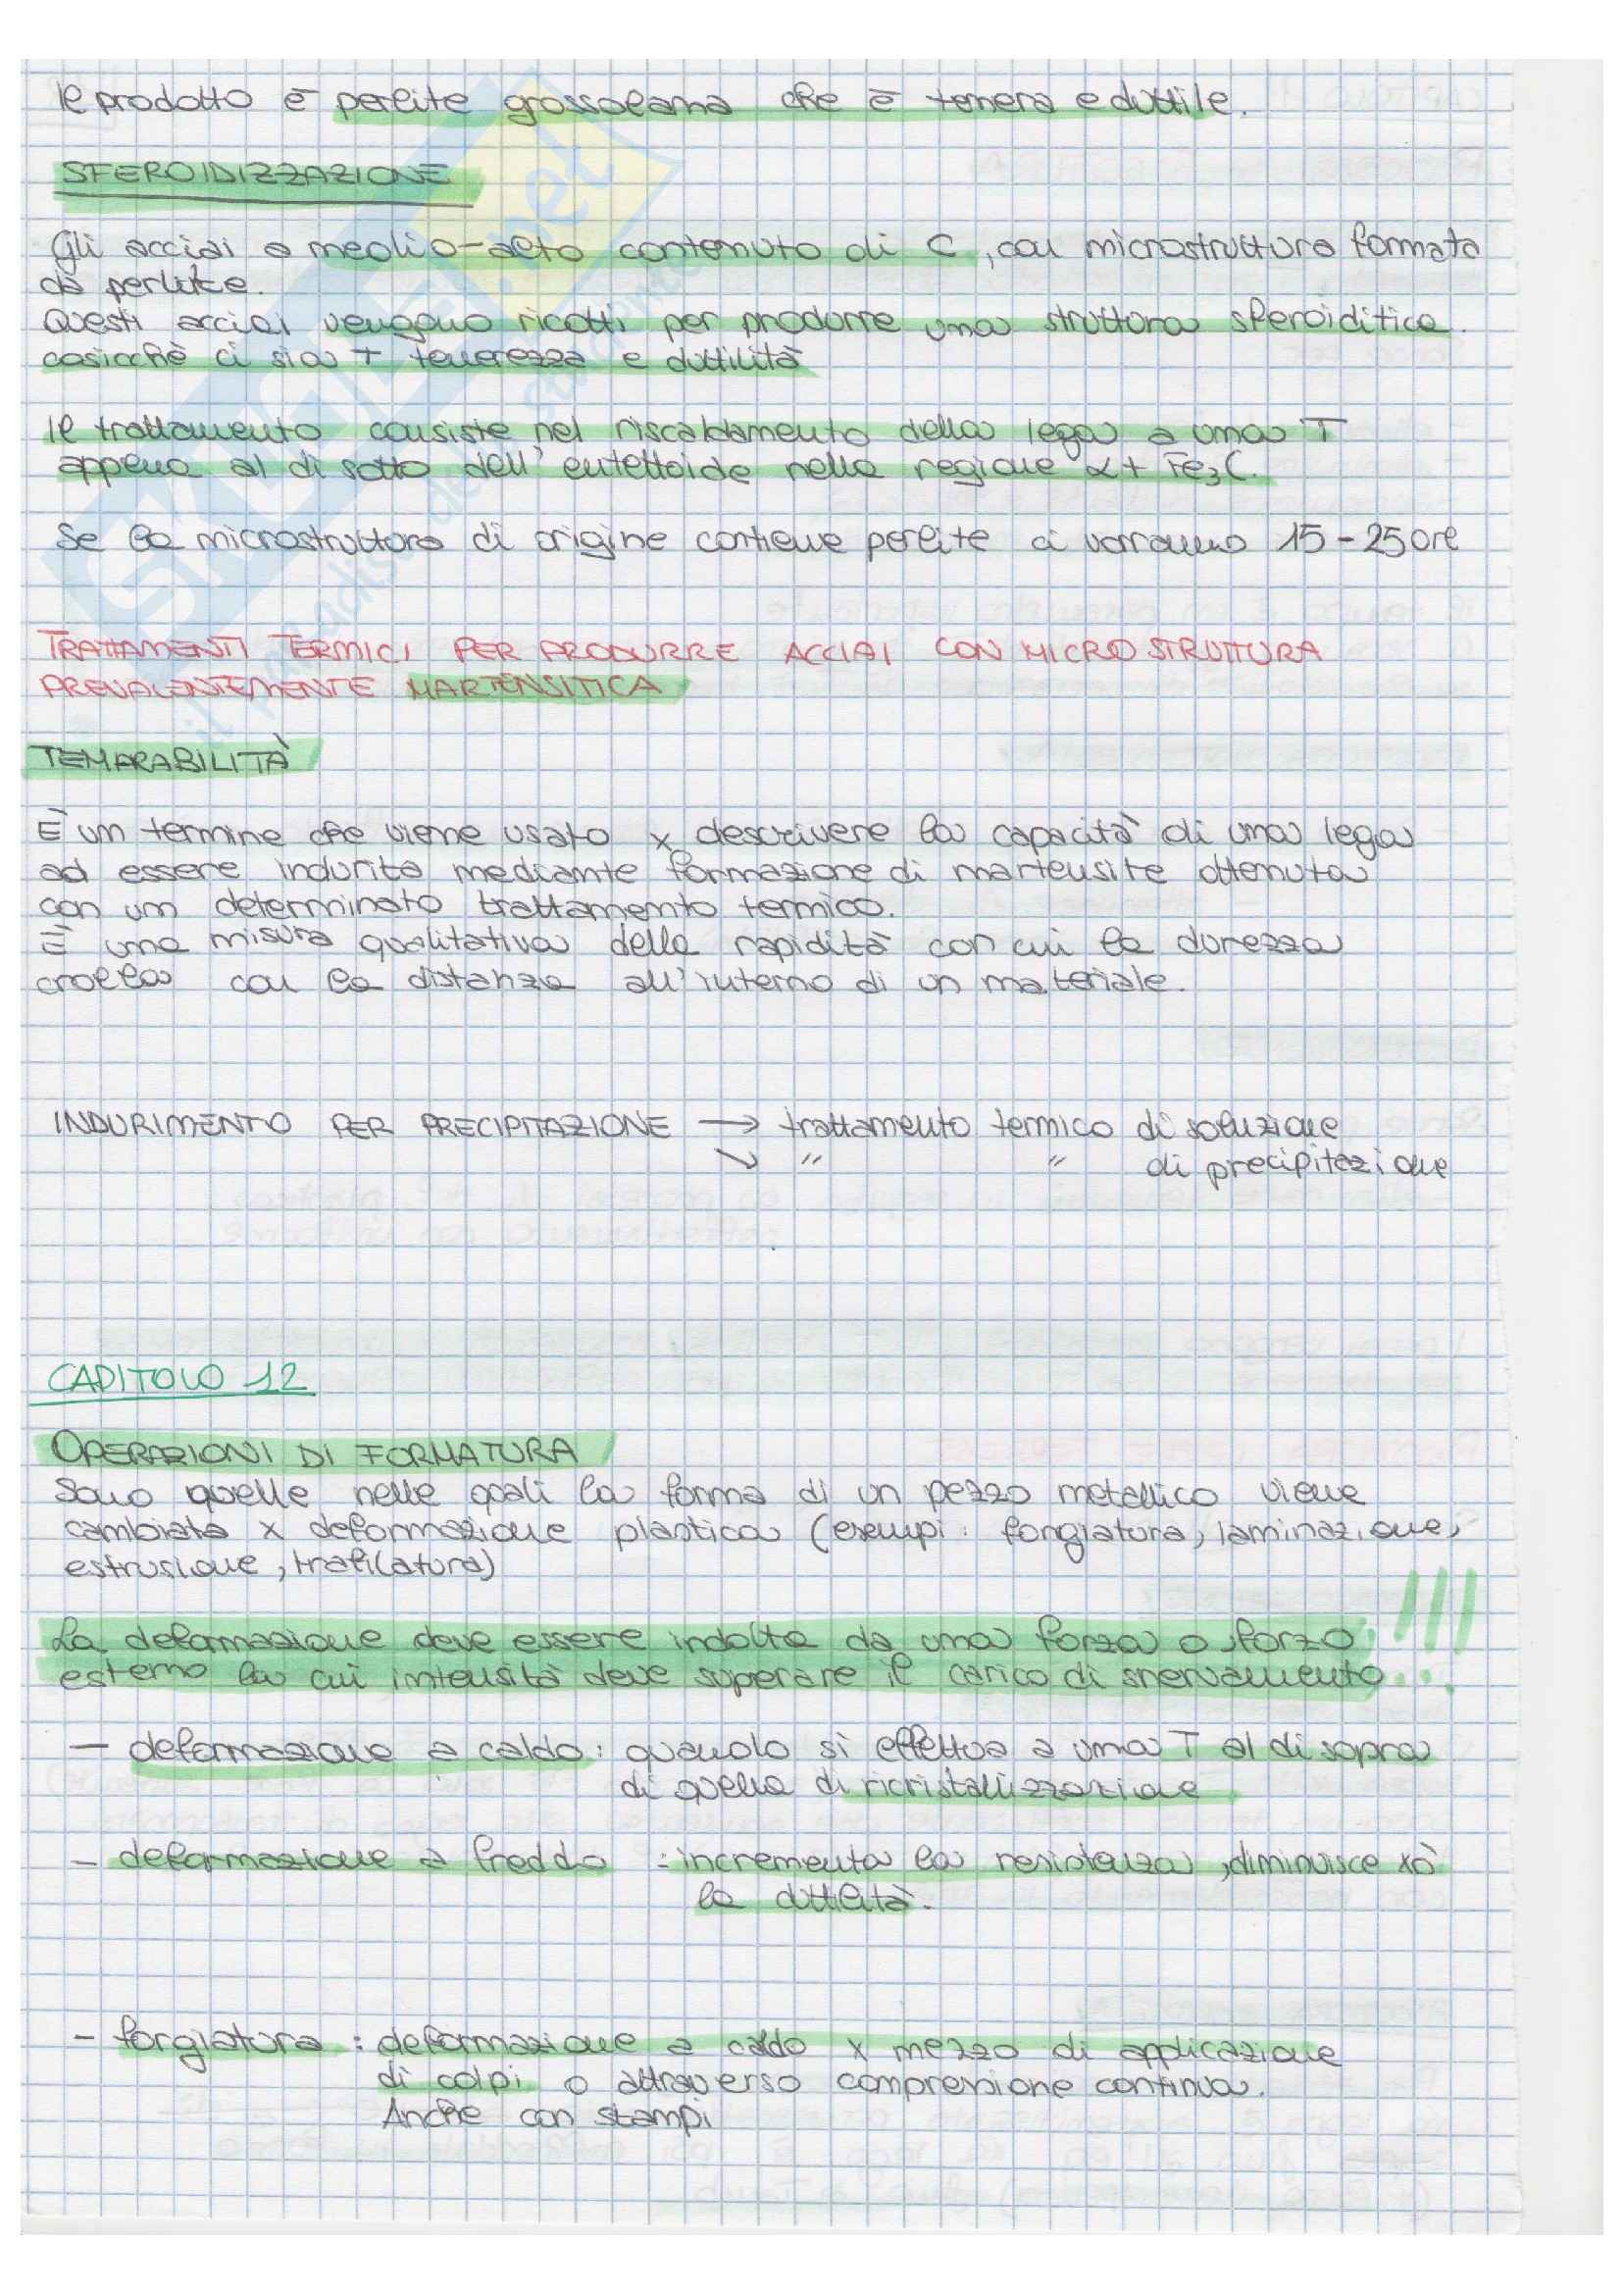 Il prodotto è perlite grossolana che è tenera e duttile.
SFEROIDIZZAZIONE
Gli acciai a medio-alto contenuto di C, con microstruttura formata
da perlite.
Questi acciai vengono ricotti per produrre una struttura sferoiditica
cosicchè ci sia + tenerezza e duttilità
Il trattamento consiste nel riscaldamento della lega a una T
appena al di sotto dell'eutettoide nella regione α + Fe₃C.
Se la microstruttura di origine contiene perlite ci vorranno 15-25 ore
TRATTAMENTI TERMICI PER PRODURRE ACCIAI CON MICROSTRUTTURA
PREVALENTEMENTE MARTENSITICA
TEMPRABILITÀ
È un termine che viene usato x descrivere la capacità di una lega
ad essere indurita mediante formazione di martensite ottenuta
con un determinato trattamento termico.
È una misura qualitativa della rapidità con cui la durezza
crolla con la distanza all'interno di un materiale.
INDURIMENTO PER PRECIPITAZIONE → trattamento termico di soluzione
↘ " " di precipitazione
CAPITOLO 12
OPERAZIONI DI FORMATURA
Sono quelle nelle quali la forma di un pezzo metallico viene
cambiata x deformazione plastica (esempi: forgiatura, laminazione,
estrusione, trafilatura)
La deformazione deve essere indotta da una forza o sforzo
esterno la cui intensità deve superare il carico di snervamento !!!
- deformazione a caldo: quando si effettua a una T al di sopra
di quella di ricristallizzazione
- deformazione a freddo: incrementa la resistenza, diminuisce xò
la duttilità.
- forgiatura: deformazione a caldo x mezzo di applicazione
di colpi o attraverso compressione continua.
Anche con stampi
SKUOLA.net